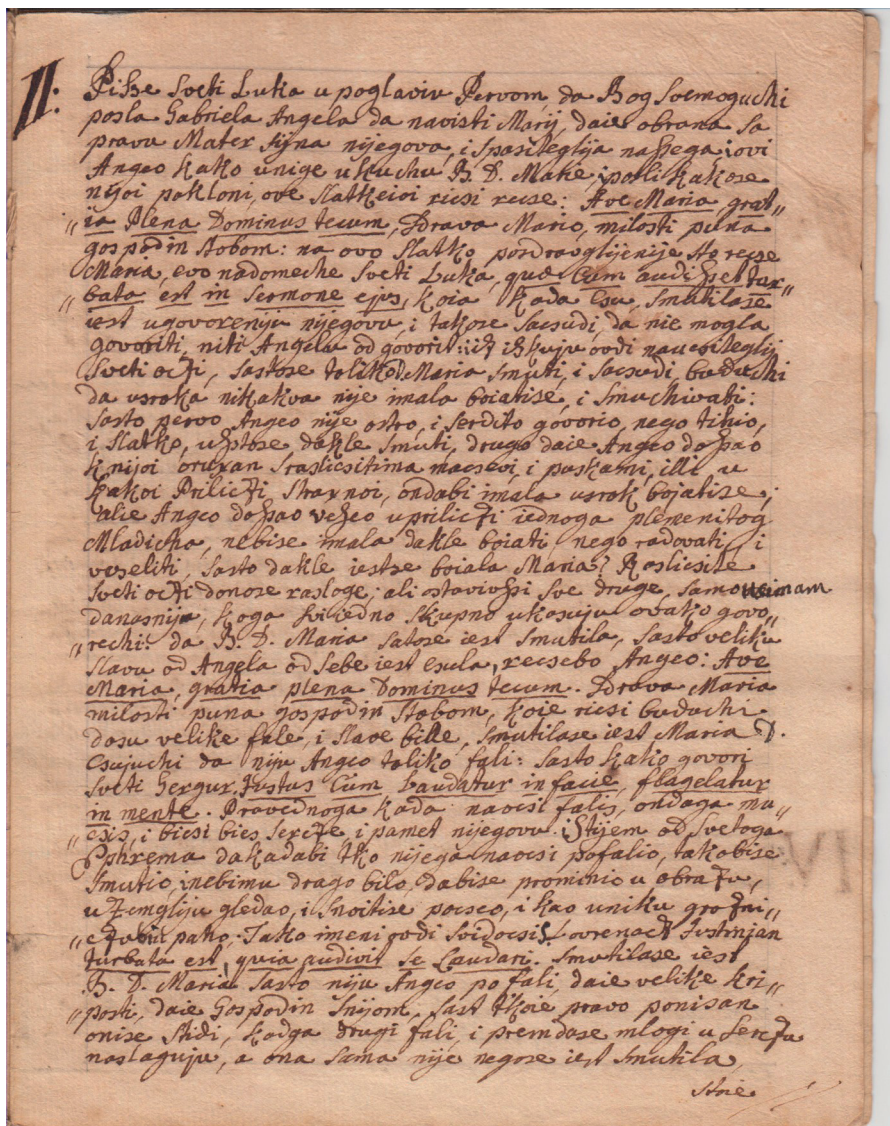 II: Pisse Sveti Luka u poglaviu Pervom, da Bog Svemoguchi
posla Gabriela Angela da navisti Marij, daie obrana Sa
pravu Mater Sijna nijegova, i Spasiteglija nassega; ovi
Angeo kako unige ukuchu B. D. Marie, posli kakose
nijoi pokloni, ove Slatkeioi ricsi recse: Ave Maria grat„
„ia Plena Dominus tecum, Zdrava Mario, milosti puna
gospodin stobom: na ovo Slatko posdravglijenije sto recse
Maria, evo nadomeche Sveti Luka, quæ Cum audisset tur„
„bata est in Sermone ejus, koia kada csu, Smutilase
iest ugovoreniju nijegovu, i takose Sacsudi, da nie mogla
govoriti, niti Angelu od govoriti: iz iskuju ovdi naucsiteglij
Sveti oczi, Sastose toliko Maria Smuti, i Sacsudi, buduchi
da usroka nikakva nije imala boiatise, i Smuchivati:
Sasto pervo Angeo nije ostro, i Serdito govorio, nego tihio,
i Slatko, usstose dakle Smuti, drugo daie Angeo dossao
knijoi orusan Sraslicsitima macsevi, i puskami, illi u
kakoi Priliczi Straxnoi, ondabi imala usrok bojatise;
alie Angeo dossao vesseo upriliczi iednoga plemenitog
Mladicha, nebise imala dakle boiati, nego radovati, i
veseliti, Sasto dakle iestse boiala Maria? Raslicsite
Sveti oczi donose rasloge; ali ostavivssi Sve druge, Samo usimam
danasnija, koga Svi iedno Skupno ukasuju ovako govo„
„rechi: da B. D. Maria Satose iest Smutila, Sasto veliku
Slavu od Angela od Sebe iest csula, recsebo Angeo: Ave
Maria, gratia plena Dominus tecum. Zdrava Maria
milosti puna gospodin Stobom, koie ricsi buduchi
dasu velike fale, i Slave bille, Smutilase iest Maria D.
Csujuchi da niju Angeo toliko fali: Sasto kako govori
Sveti Gergur, Justus Cum Laudatur in facie, flagelatur
in mente. Pravednoga kada naocsi falis, ondaga mu„
„csis, i bicsi bies Sercze, i pamet nijegovu. i Stijem od Svetoga
Ephrema dakadabi tko nijega naocsi pofalio, takobise
Smutio, inebimu drago bilo, dabise prominio u obrazu,
u Zemgliju gledao, i Snoitise pocseo, i kao uniku grozni„
„czubiu pako. Tako imeni ovdi Svidocsi S. Lovrenacz Justinjan
turbata est, quia audivit se Laudari. Smutilase iest
B. D. Maria Sasto niju Angeo pofali, daie velike kri„
„posti, daie Gospodin Snijom, Sast tkoie pravo ponisan
onise Stidi, kadga drugi fali, i premdase mlogi u Serczu
naslaguju, a ona Sama nije negose iest Smutila,
stoie